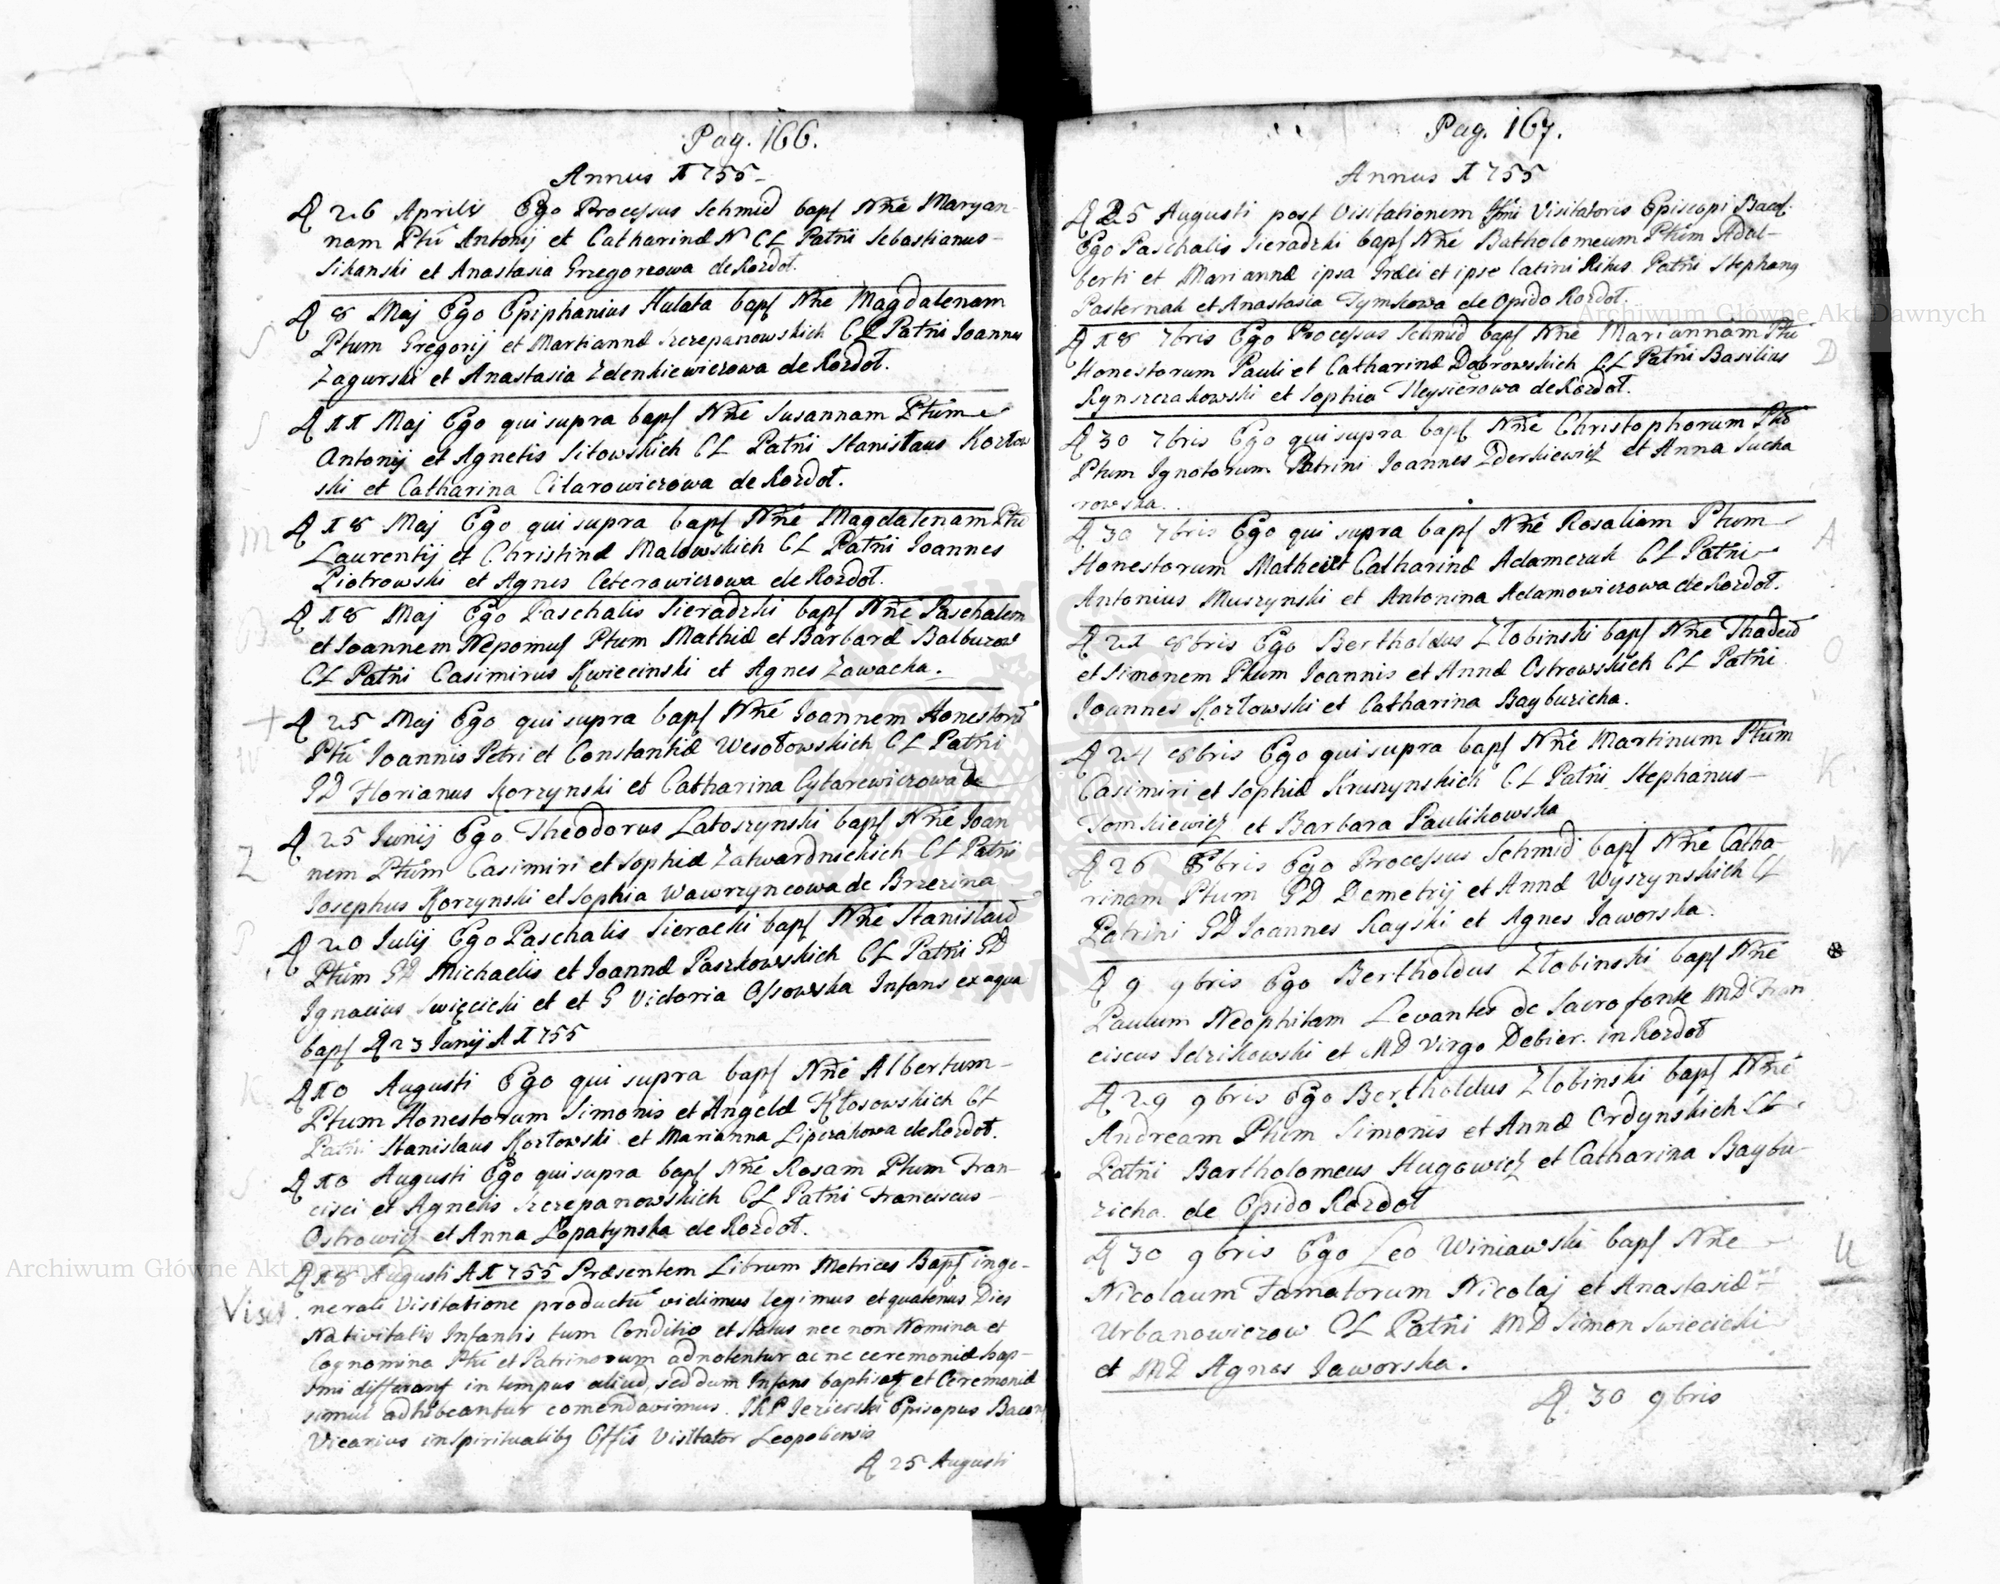 Pag. 166.
Annus 1755
D 26 Aprilis Ego Processus Schmid bapt Nñe Maryan-
nam Ptũ Antonij et Catharinæ N CL Patñi Sebastianus
Sikanski et Anastasia Grzegorzowa de Rozdoł.
D 8 Maj Ego Epiphanius Hulata bapt Nñe Magdalenam
Ptum Gregorij et Mariannæ Szczepanowskich CL Patñi Joannes
Zagurski et Anastasia Zdenkiewiczowa de Rozdoł.
S
D 11 Maj Ego qui supra bapt Nñe Susannam Ptum
Antonij et Agnetis Sitowskich CL Patñi Stanisłaus Kozłow
ski et Catharina Citarowiczowa de Rozdoł.
S
D 18 Maj Ego qui supra bapt Nñe Magdalenam Ptũ
Laurentij et Christinæ Malowskich CL Patñi Joannes
Piotrowski et Agnes Ceterawiczowa de Rozdoł.
M
D 18 Maj Ego Paschalis Sieradzki bapt Nñe Paschalem
et Joannem Nepomuc Ptum Mathiæ et Barbaræ Balburow
CL Patñi Casimirus Kwiecinski et Agnes Zawacka.
B
D 25 Maj Ego qui supra bapt Nñe Joannem Honestorũ
Ptũ Joannis Petri et Constantiæ Wesołowskich CL Patñi
GD Florianus Korzynski et Catharina Cytarewiczowa de
+
W
D 25 Junij Ego Theodorus Latoszynski bapt Nñe Joan
nem Ptum Casimiri et Sophiæ Zatwardnickich CL Patñi
Josephus Korzynski et Sophia Wawrzyncowa de Brzezina
Z
D 20 Julij Ego Paschalis Sieracki bapt Nñe Stanislaũ
Ptum GD Michaelis et Joannæ Paszkowskich CL Patñi GD
Ignacius Swięcicki et et G Victoria Ossowska Infans ex aqua
bapt D 23 Junij A 1755
P
D 10 Augusti Ego qui supra bapt Nñe Albertum
Ptum Honestorum Simonis et Angelæ Kłosowskich CL
Patñi Stanislaus Kozłowski et Marianna Lipczakowa de Rozdoł.
K
D 10 Augusti Ego qui supra bapt Nñe Rosam Ptum Fran-
cisci et Agnetis Szczepanowskich CL Patñi Franciscus
Ostrowicz et Anna Łopatynska de Rozdoł.
S
D 18 Augusti A 1755 Præsentem Librum Metrices Bapt in ge-
nerali Visitatione productũ vidimus legimus et quatenus Dies
Nativitatis Infantis tum Conditio et Status nec non Nomina et
Cognomina Ptũ et Patrinorum adnotentur ac ne ceremoniæ bap-
tmi differant in tempus aliud, sed dum Infans baptisat et Ceremoniæ
simul adhibeantur comendavimus. Jezierski Episcopus Bacov
Vicarius in Spiritualibg Offis Visitator Leopoliensis
Visit
D 25 Augusti
Pag. 167.
Annus 1755
D 25 Augusti post Visitationem Visitatoris Episcopi Bacov.
Ego Paschalis Sieradzki bapt Nñe Batholomeum Ptum Adal-
berti et Mariannæ ipsa Græci et ipse latini Ritus Patñi Stephang
Pasternak et Anastasia Tymkowa de Opido Rozdoł.
D 18 7bris Ego Processus Schmid bapt Nñe Mariannam Ptũ
Honestorum Pauli et Catharinæ Dobrowskich CL Patñi Basilius
Rynszczakowski et Sophia de Rozdoł.
D
D 30 7bris Ego qui supra bapt Nñe Christophorum
Ptum Ignotorum Patrini Joannes Zderkiewicz et Anna Sucha
rowska.
D 30 7bris Ego qui supra bapt Nñe Rosaliam Ptum
Honestorum Mathei et Catharinæ Adamczuk CL Patñi
Antonius Muszynski et Antonina Adamowiczowa de Rozdoł.
A
D 21 8bris Ego Bertholdus Złobinski bapt Nñe Thadeũ
et Simonem Ptum Joannis et Annæ Ostrowskich CL Patñi
Joannes Kozłowski et Catharina Bayburicha.
O
D 24 8bris Ego qui supra bapt Nñe Martinum Ptum
Casimiri et Sophiæ Kruszynskich CL Patñi Stephanus
Tomkiewicz et Barbara Paulikowska
K
D 26 8bris Ego Processus Schmid bapt Nñe Catha-
rinam Ptum GD Demetrij et Annæ Wyszynskich CL
Patrini GD Joannes Rayski et Agnes Jaworska.
W
D 9 9bris Ego Bertholdus Złobinski bapt Nñe
Paulum Neophitam Levantes de Sacro fonte MD Fran
ciscus Idzikowski et MD Virgo Debier. in Rozdoł
D 29 9bris Ego Bertholdus Złobinski bapt Nñe
Andream Ptum Simonis et Annæ Ordynskich CL
Patñi Bartholomeus Hugowicz et Catharina Baybu-
richa de Opido Rozdoł
D 30 9bris Ego Leo Winiawski bapt Nñe
Nicolaum Famatorum Nicolaj et Anastasiæ
Urbanowiczow CL Patñi MD Simon Swiecicki
et MD Agnes Jaworska.
U
D. 30 9bris
Archiwum Główne Akt Dawnych
Archiwum Główne Akt Dawnych